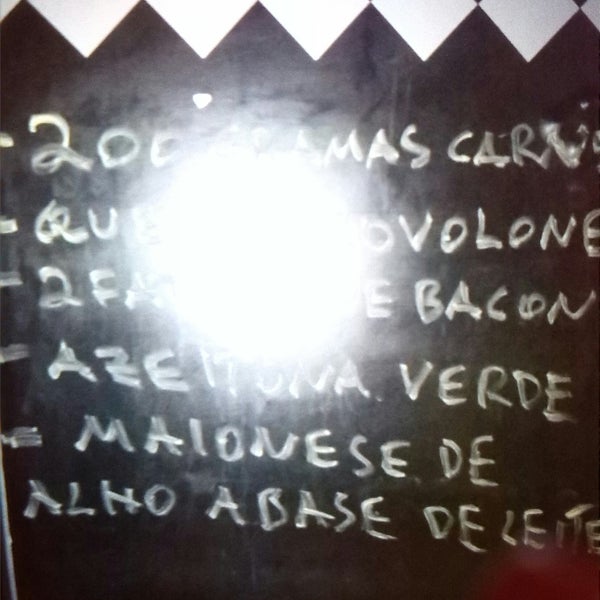 - 200 GRAMAS CARNE
- QUE OVOLONE
- 2 FA E BACON
- AZEITONA VERDE
- MAIONESE DE
ALHO A BASE DE LEITE